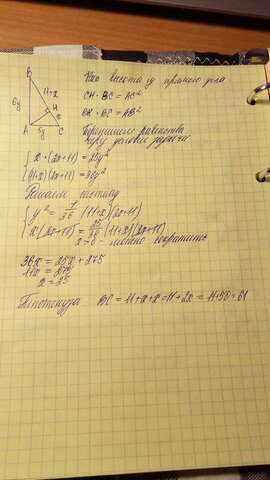 B
11+x
6y
H
x
A 5y C
Как высота из прямого угла
CH · BC = AC²
BH · BC = AB²
равенства
через условие задачи
x · (2x+11) = 25y²
(11+x)(2x+11) = 36y²
Решаем систему
y² = 1/36 (11+x)(2x+11)
x(2x+11) = 25/36 (11+x)(2x+11)
x>0 - можно сократить
36x = 25x + 275
11x = 275
x = 25
Гипотенуза BC = 11+x+x = 11+2x = 11+50 = 61